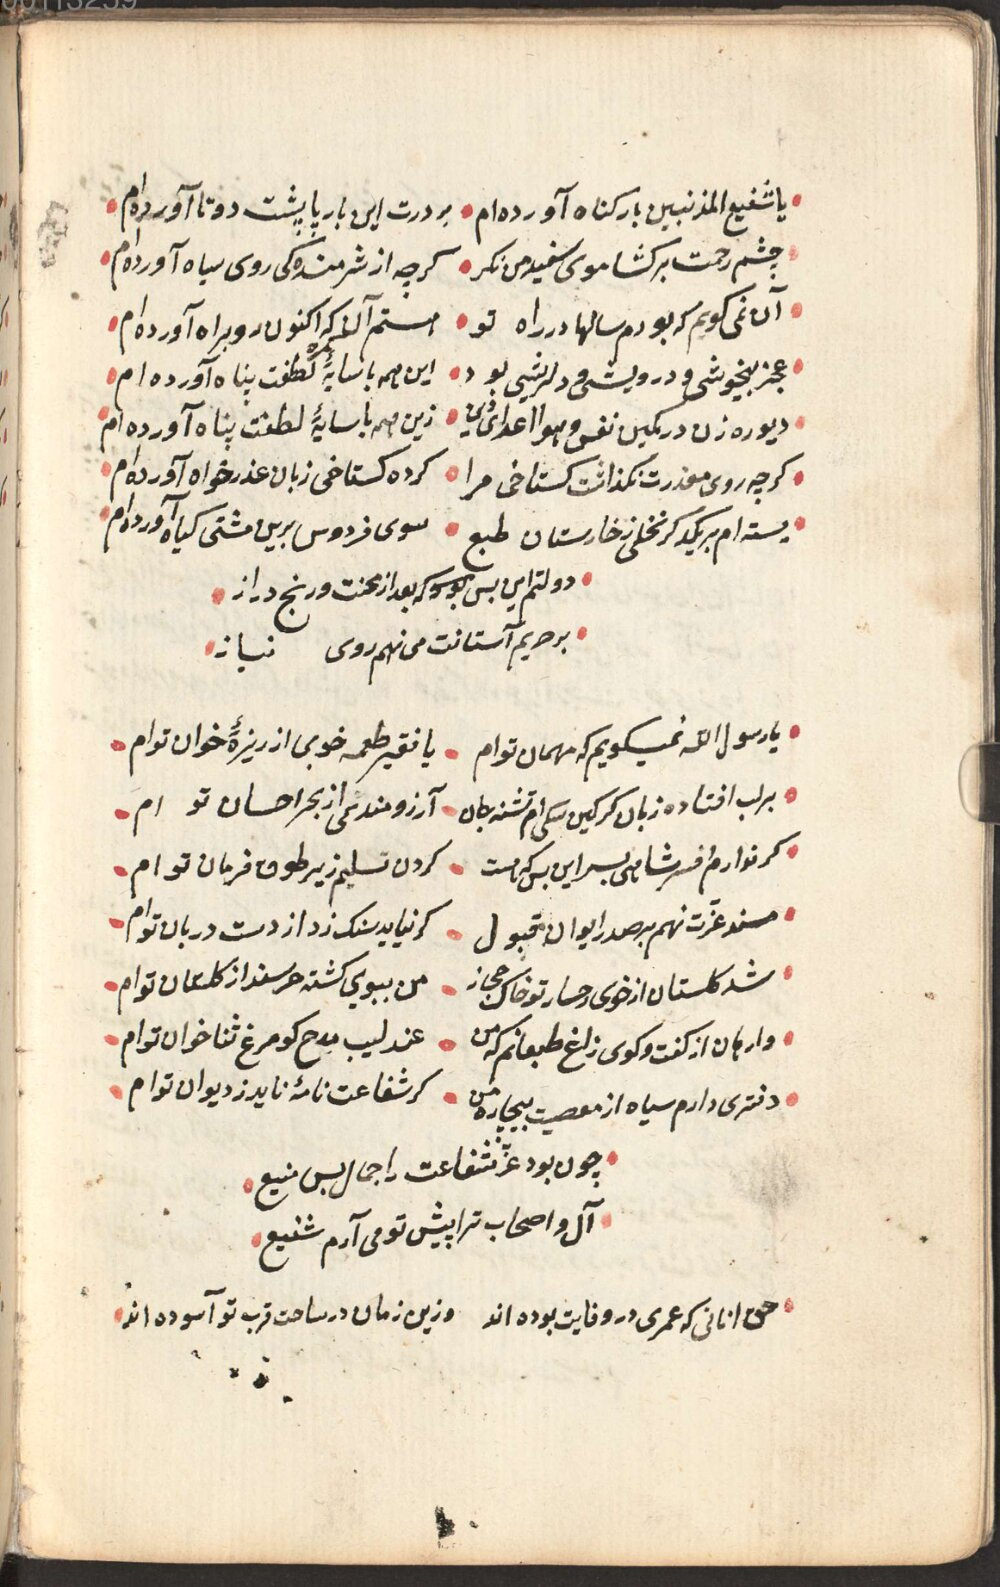 یا شفیع المذنبین بار کناه آورده ام بر درت این بار با پشت دوتا آورده ام
چشم رحمت برکشا موی سفید من نکر کرچه از شرمندکی روی سیاه آورده ام
آن نمی کویم که بودم سالها در راه تو هستم آن که اکنون رو براه آورده ام
عجز بیخویشی و درویشی و دلریشی بود این همه با سایهٔ لطفت پناه آورده ام
دیو ره زن در کمین نفس و هوا اعدای دین زین همه با سایهٔ لطفت پناه آورده ام
کرچه روی معذرت نکذاشت کستاخی مرا کرده کستاخی زبان عذر خواه آورده ام
بسته ام بر یکدکر نخلی ز خارستان طبع سوی فردوس برین مشتی کیاه آورده ام
دولتم این بس بود که بعد از محنت و رنج دراز
بر حریم آستانت می نهم روی نیاز
یا رسول الله نمیکویم که مهمان توام یا فقیر طعمه خوبی از ریزهٔ خوان توام
بر لب افتاده زبان کرکین سکی ام تشنه جان آرزومند نمی از بحر احسان تو ام
کر ندارم افسر شاهی بسر این بس که هست کردن تسلیم زیر طوق فرمان تو ام
مسند عزت نهم بر صدر ایوان قبول کر نیاید سنک زد از دست دربان توام
شد کلستان از خوی رخسار تو خاک حجاز من ببویی کشته خرسند از کلستان توام
وارهان از کفت و کوی زاغ طبعانم که من عندلیب مدح کو مرغ ثناخوان توام
دفتری دارم سیاه از معصیت بیچاره من کر شفاعت نامهٔ ناید ز دیوان توام
چون بود عز شفاعت را جمال بس منیع
آل و اصحاب ترا پیش تو می آرم شفیع
حق انانی که عمری در وفایت بوده اند وزین زمان در ساحت قرب تو آسوده اند